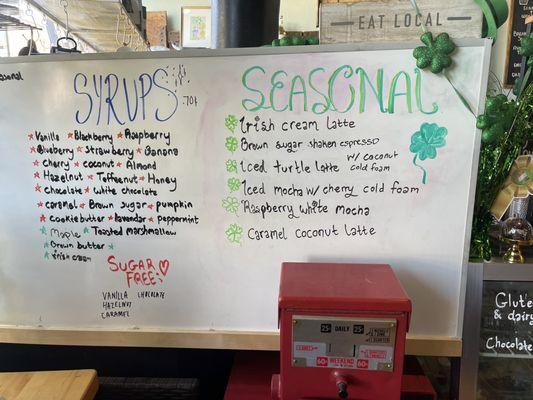 EAT LOCAL
sonal
SYRUPS .70¢
Vanilla Blackberry Raspberry
Blueberry Strawberry Banana
Cherry coconut Almond
Hazelnut Toffeenut Honey
chocolate white chocolate
caramel Brown sugar pumpkin
cookiebutter lavendar peppermint
Maple Toasted marshmallow
Brown butter
Irish cream
SUGAR FREE
VANILLA CHOCOLATE
HAZELNUT
CARAMEL
SEASONAL
Irish cream latte
Brown sugar shaken espresso
Iced turtle latte w/ coconut cold foam
Iced mocha w/ cherry cold foam
Raspberry white mocha
Caramel coconut latte
25¢ DAILY 25¢
60¢ WEEKEND 60¢
Glute
& dairy
Chocolate